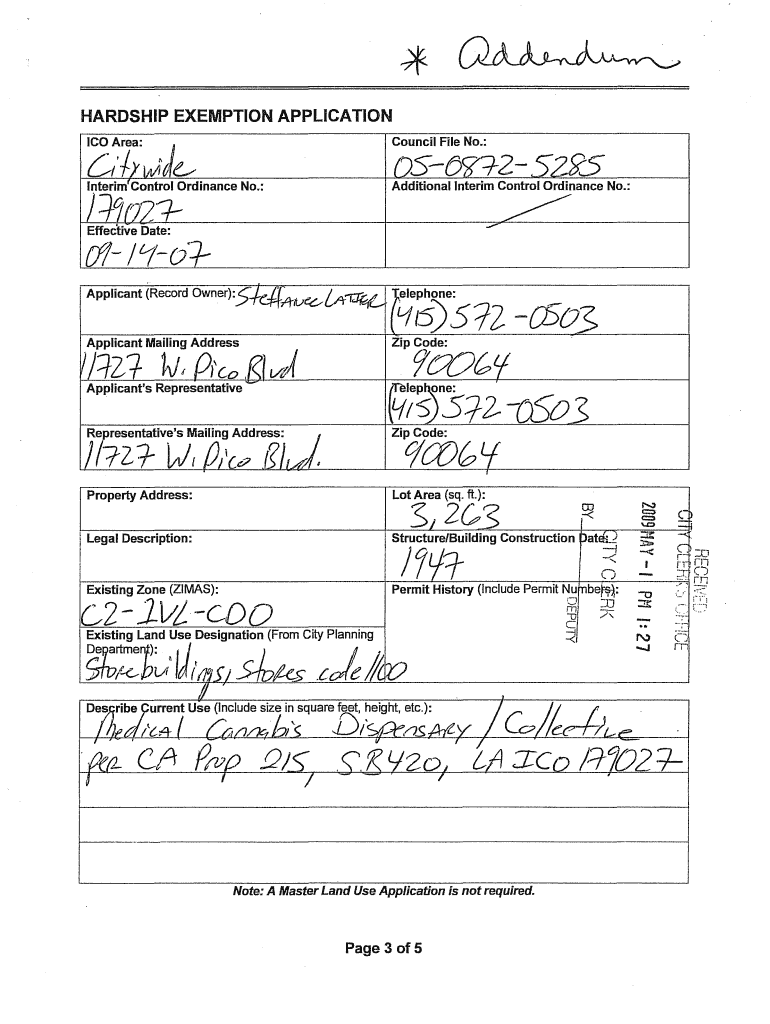 * Addendum
HARDSHIP EXEMPTION APPLICATION
ICO Area:
Citywide
Council File No.:
05-0872-5285
Interim Control Ordinance No.:
179027
Additional Interim Control Ordinance No.:
Effective Date:
09-14-07
Applicant (Record Owner): Steffanee LATTER
Telephone:
(415) 572-0503
Applicant Mailing Address
11727 W. Pico Blvd
Zip Code:
90064
Applicant's Representative
Telephone:
(415) 572-0503
Representative's Mailing Address:
11727 W. Pico Blvd.
Zip Code:
90064
Property Address:
Lot Area (sq. ft.):
3,263
Legal Description:
Structure/Building Construction Date:
1947
Existing Zone (ZIMAS):
C2-1VL-CDO
Permit History (Include Permit Numbers):
Existing Land Use Designation (From City Planning
Department):
Store buildings, Stores code 1100
RECEIVED
CITY CLERK'S OFFICE
2009 MAY -1 PM 1:27
CITY CLERK
BY
DEPUTY
Describe Current Use (Include size in square feet, height, etc.):
Medical Cannabis Dispensary / Collective
per CA Prop 215, SB420, LA ICO 179027
Note: A Master Land Use Application is not required.
Page 3 of 5